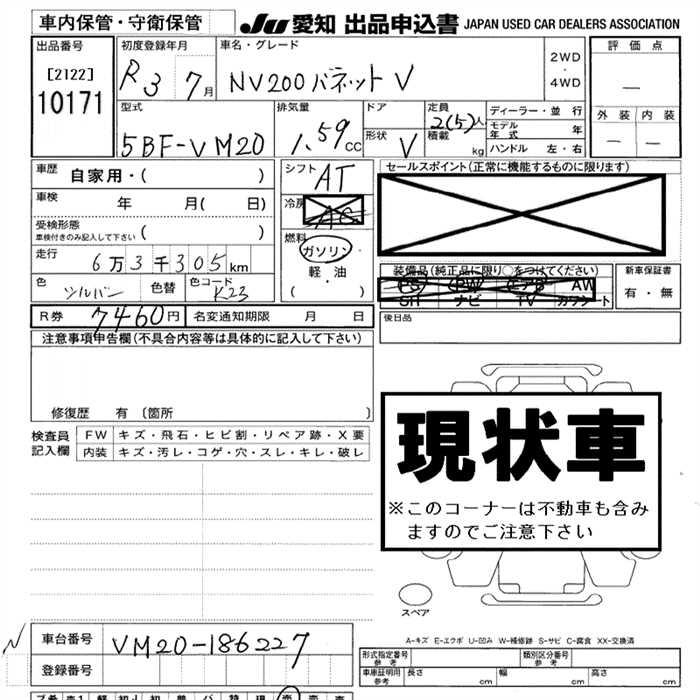 車内保管・守衛保管 JU 愛知 出品申込書 JAPAN USED CAR DEALERS ASSOCIATION
出品番号 初度登録年月 車名・グレード 評価点
[2122] R3 7月 NV200バネット V 2WD ・ 4WD
10171 外装 内装
型式 排気量 ドア 定員 2(5)人 ディーラー・並行
5BF-VM20 1.59CC 形状 V 積載 kg モデル年式 年
ハンドル 左・右
車歴 自家用・( ) シフト AT セールスポイント(正常に機能するものに限ります)
車検 年 月( 日) 冷房 AC
受検形態 ( ) 燃料
車検付きのみ記入して下さい ガソリン・
走行 6万3千305km 軽・油 装備品(純正品に限り○をつけてください) 新車保証書
色 シルバー 色替 色コード K23 ( ) PS PW エアB AW 有・無
SR ナビ TV カワシート
R券 7460円 名変通知期限 月 日 後日品
注意事項申告欄(不具合内容等は具体的に記入して下さい)
修復歴 有〔箇所 〕
現状車
※このコーナーは不動車も含み
ますのでご注意下さい
検査員 FW キズ・飛石・ヒビ割・リペア跡・X要
記入欄 内装 キズ・汚レ・コゲ・穴・スレ・キレ・破レ
スペア
N 車台番号 VM20-186227
A-キズ E-エクボ U-凹み W-補修跡 S-サビ C-腐食 XX-交換済
登録番号
形式指定番号 参考 類別区分番号 参考
車庫証明用 参考 長さ cm 幅 cm 高さ cm